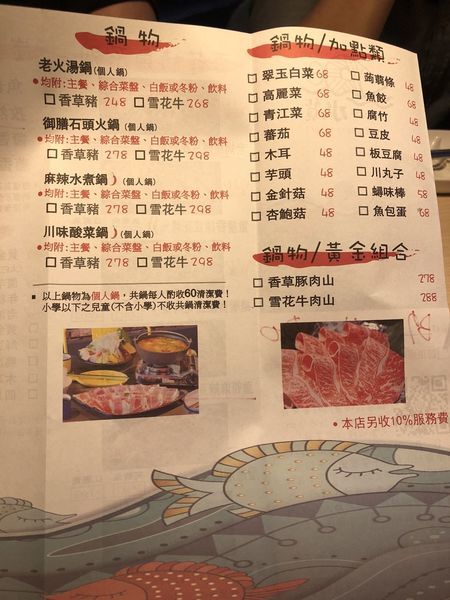 鍋物
老火湯鍋(個人鍋)
•均附:主餐、綜合菜盤、白飯或冬粉、飲料
□香草豬 248 □雪花牛 268
御膳石頭火鍋(個人鍋)
•均附:主餐、綜合菜盤、白飯或冬粉、飲料
□香草豬 278 □雪花牛 298
麻辣水煮鍋(個人鍋)
•均附:主餐、綜合菜盤、白飯或冬粉、飲料
□香草豬 278 □雪花牛 298
川味酸菜鍋(個人鍋)
•均附:主餐、綜合菜盤、白飯或冬粉、飲料
□香草豬 278 □雪花牛 298
■以上鍋物為個人鍋,共鍋每人酌收60清潔費!
小學以下之兒童(不含小學)不收共鍋清潔費!
鍋物/加點類
□翠玉白菜 68 □蒟蒻條 48
□高麗菜 68 □魚餃 68
□青江菜 68 □腐竹 48
□蕃茄 68 □豆皮 48
□木耳 48 □板豆腐 48
□芋頭 48 □川丸子 48
□金針菇 48 □蟳味棒 58
□杏鮑菇 48 □魚包蛋 68
鍋物/黃金組合
□香草豚肉山 278
□雪花牛肉山 288
•本店另收10%服務費